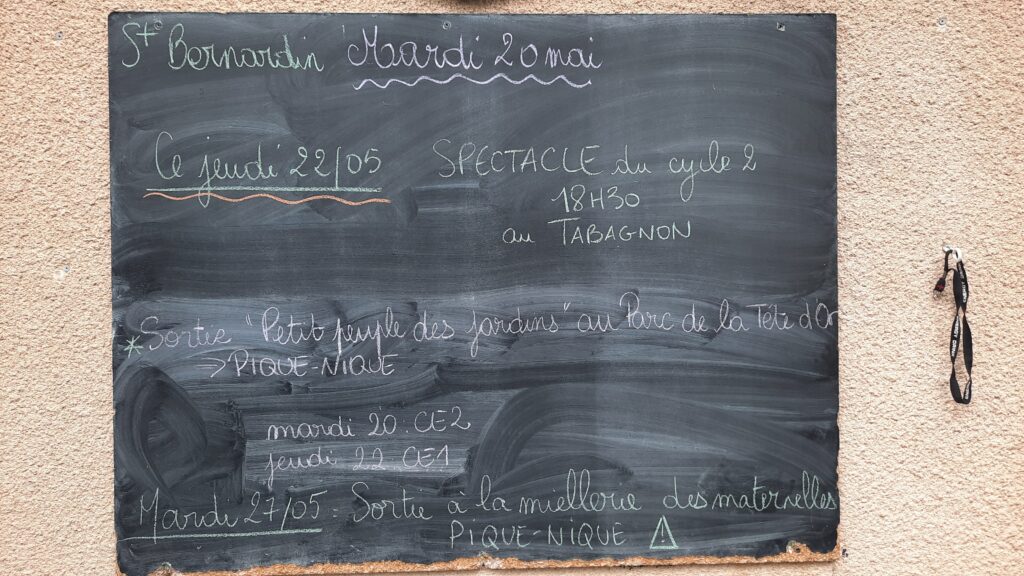 St Bernardin Mardi 20 mai
Ce jeudi 22/05 SPECTACLE du cycle 2
18H30
au TABAGNON
* Sortie "Petit peuple des jardins" au Parc de la Tête d'Or
→ PIQUE-NIQUE
mardi 20 CE2
jeudi 22 CE1
Mardi 27/05 = Sortie à la miellerie des maternelles
PIQUE-NIQUE ⚠